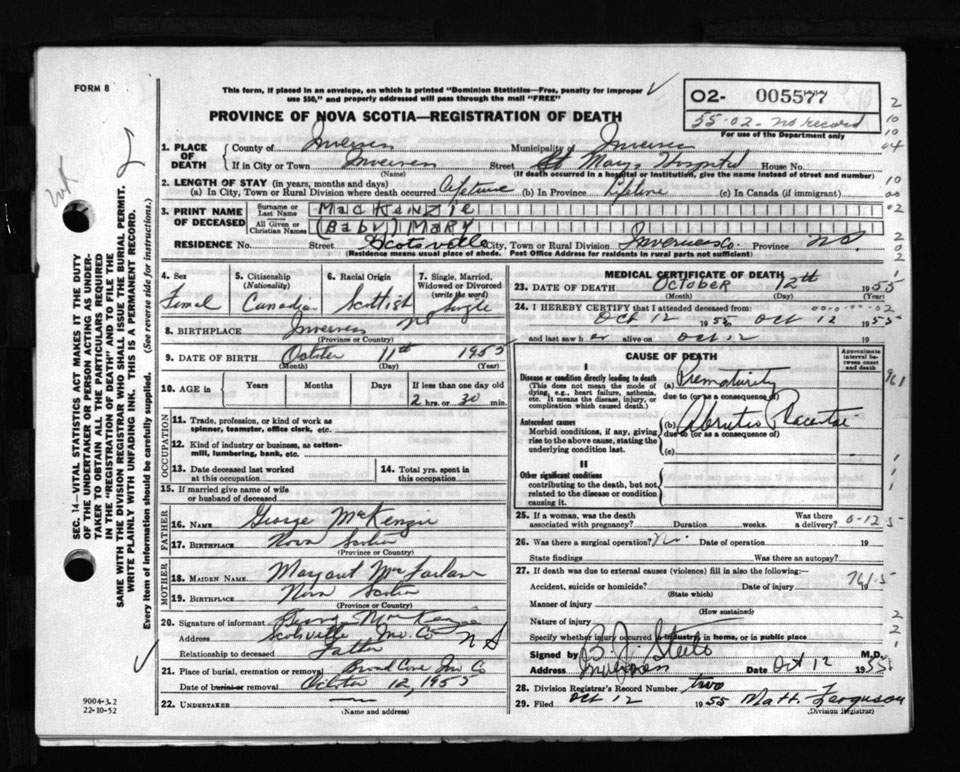 FORM 8
This form, if placed in an envelope, on which is printed "Dominion Statistics—Free, penalty for improper
use $50," and properly addressed will pass through the mail "FREE"
PROVINCE OF NOVA SCOTIA—REGISTRATION OF DEATH
O2- 005577
55-02- no record
For use of the Department only
1. PLACE OF DEATH
County of Inverness Municipality of Inverness
If in City or Town Inverness Street St Marys Hospital House No.
(Name) (If death occurred in a hospital or institution, give the name instead of street and number)
2. LENGTH OF STAY (in years, months and days)
(a) In City, Town or Rural Division where death occurred Lifetime (b) In Province Lifetime (c) In Canada (if immigrant)
3. PRINT NAME OF DECEASED
Surname or Last Name MacKenzie
All Given or Christian Names (Baby) Mary
RESIDENCE No. Street Scotsville City, Town or Rural Division Inverness Co. Province N.S.
(Residence means usual place of abode. Post Office Address for residents in rural parts not sufficient)
4. Sex 5. Citizenship (Nationality) 6. Racial Origin 7. Single, Married, Widowed or Divorced (write the word)
Femal Canadian Scottish Single
8. BIRTHPLACE Inverness NS
(Province or Country)
9. DATE OF BIRTH October 11th 1955
(Month) (Day) (Year)
10. AGE in Years Months Days If less than one day old
2 hrs. or 30 min.
OCCUPATION
11. Trade, profession, or kind of work as spinner, teamster, office clerk, etc.
12. Kind of industry or business, as cotton-mill, lumbering, bank, etc.
13. Date deceased last worked at this occupation
14. Total yrs. spent in this occupation
15. If married give name of wife or husband of deceased
FATHER
16. NAME George McKenzie
17. BIRTHPLACE Nova Scotia
(Province or Country)
MOTHER
18. MAIDEN NAME Margaret McFarlane
19. BIRTHPLACE Nova Scotia
(Province or Country)
20. Signature of informant McKenzie
Address Scotsville Inv. Co N S
Relationship to deceased Father
21. Place of burial, cremation or removal Broad Cove Inv Co
Date of burial or removal October 12, 1955
22. UNDERTAKER
(Name and address)
MEDICAL CERTIFICATE OF DEATH
23. DATE OF DEATH October 12th 1955
(Month) (Day) (Year)
24. I HEREBY CERTIFY that I attended deceased from:
Oct 12 1955 to Oct 12 1955
and last saw her alive on Oct 12 19
CAUSE OF DEATH
Approximate interval between onset and death
I
Disease or condition directly leading to death
(This does not mean the mode of dying, e.g., heart failure, asthenia, etc. It means the disease, injury, or complication which caused death.)
(a) Prematurity
due to (or as a consequence of)
Antecedent causes
Morbid conditions, if any, giving rise to the above cause, stating the underlying condition last.
(b) Abruptio Placentae
due to (or as a consequence of)
(c)
II
Other significant conditions
contributing to the death, but not related to the disease or condition causing it.
25. If a woman, was the death associated with pregnancy? Duration weeks. Was there a delivery?
26. Was there a surgical operation? No. Date of operation 19
State findings Was there an autopsy?
27. If death was due to external causes (violence) fill in also the following:—
Accident, suicide or homicide? Date of injury
(State which)
Manner of injury
(How sustained)
Nature of injury
Specify whether injury occurred in industry, in home, or in public place
Signed by M.D.
Address Date Oct 12 1955
28. Division Registrar's Record Number two
29. Filed Oct 12 1955 Matt. Ferguson
(Division Registrar)
SEC. 14—VITAL STATISTICS ACT MAKES IT THE DUTY
OF THE UNDERTAKER OR PERSON ACTING AS UNDER-
TAKER TO OBTAIN ALL THE PARTICULARS REQUIRED
IN THE "REGISTRATION OF DEATH" AND TO FILE THE
SAME WITH THE DIVISION REGISTRAR WHO SHALL ISSUE THE BURIAL PERMIT.
WRITE PLAINLY WITH UNFADING INK. THIS IS A PERMANENT RECORD.
Every item of information should be carefully supplied. (See reverse side for instructions.)
9004-3.2
22-10-52